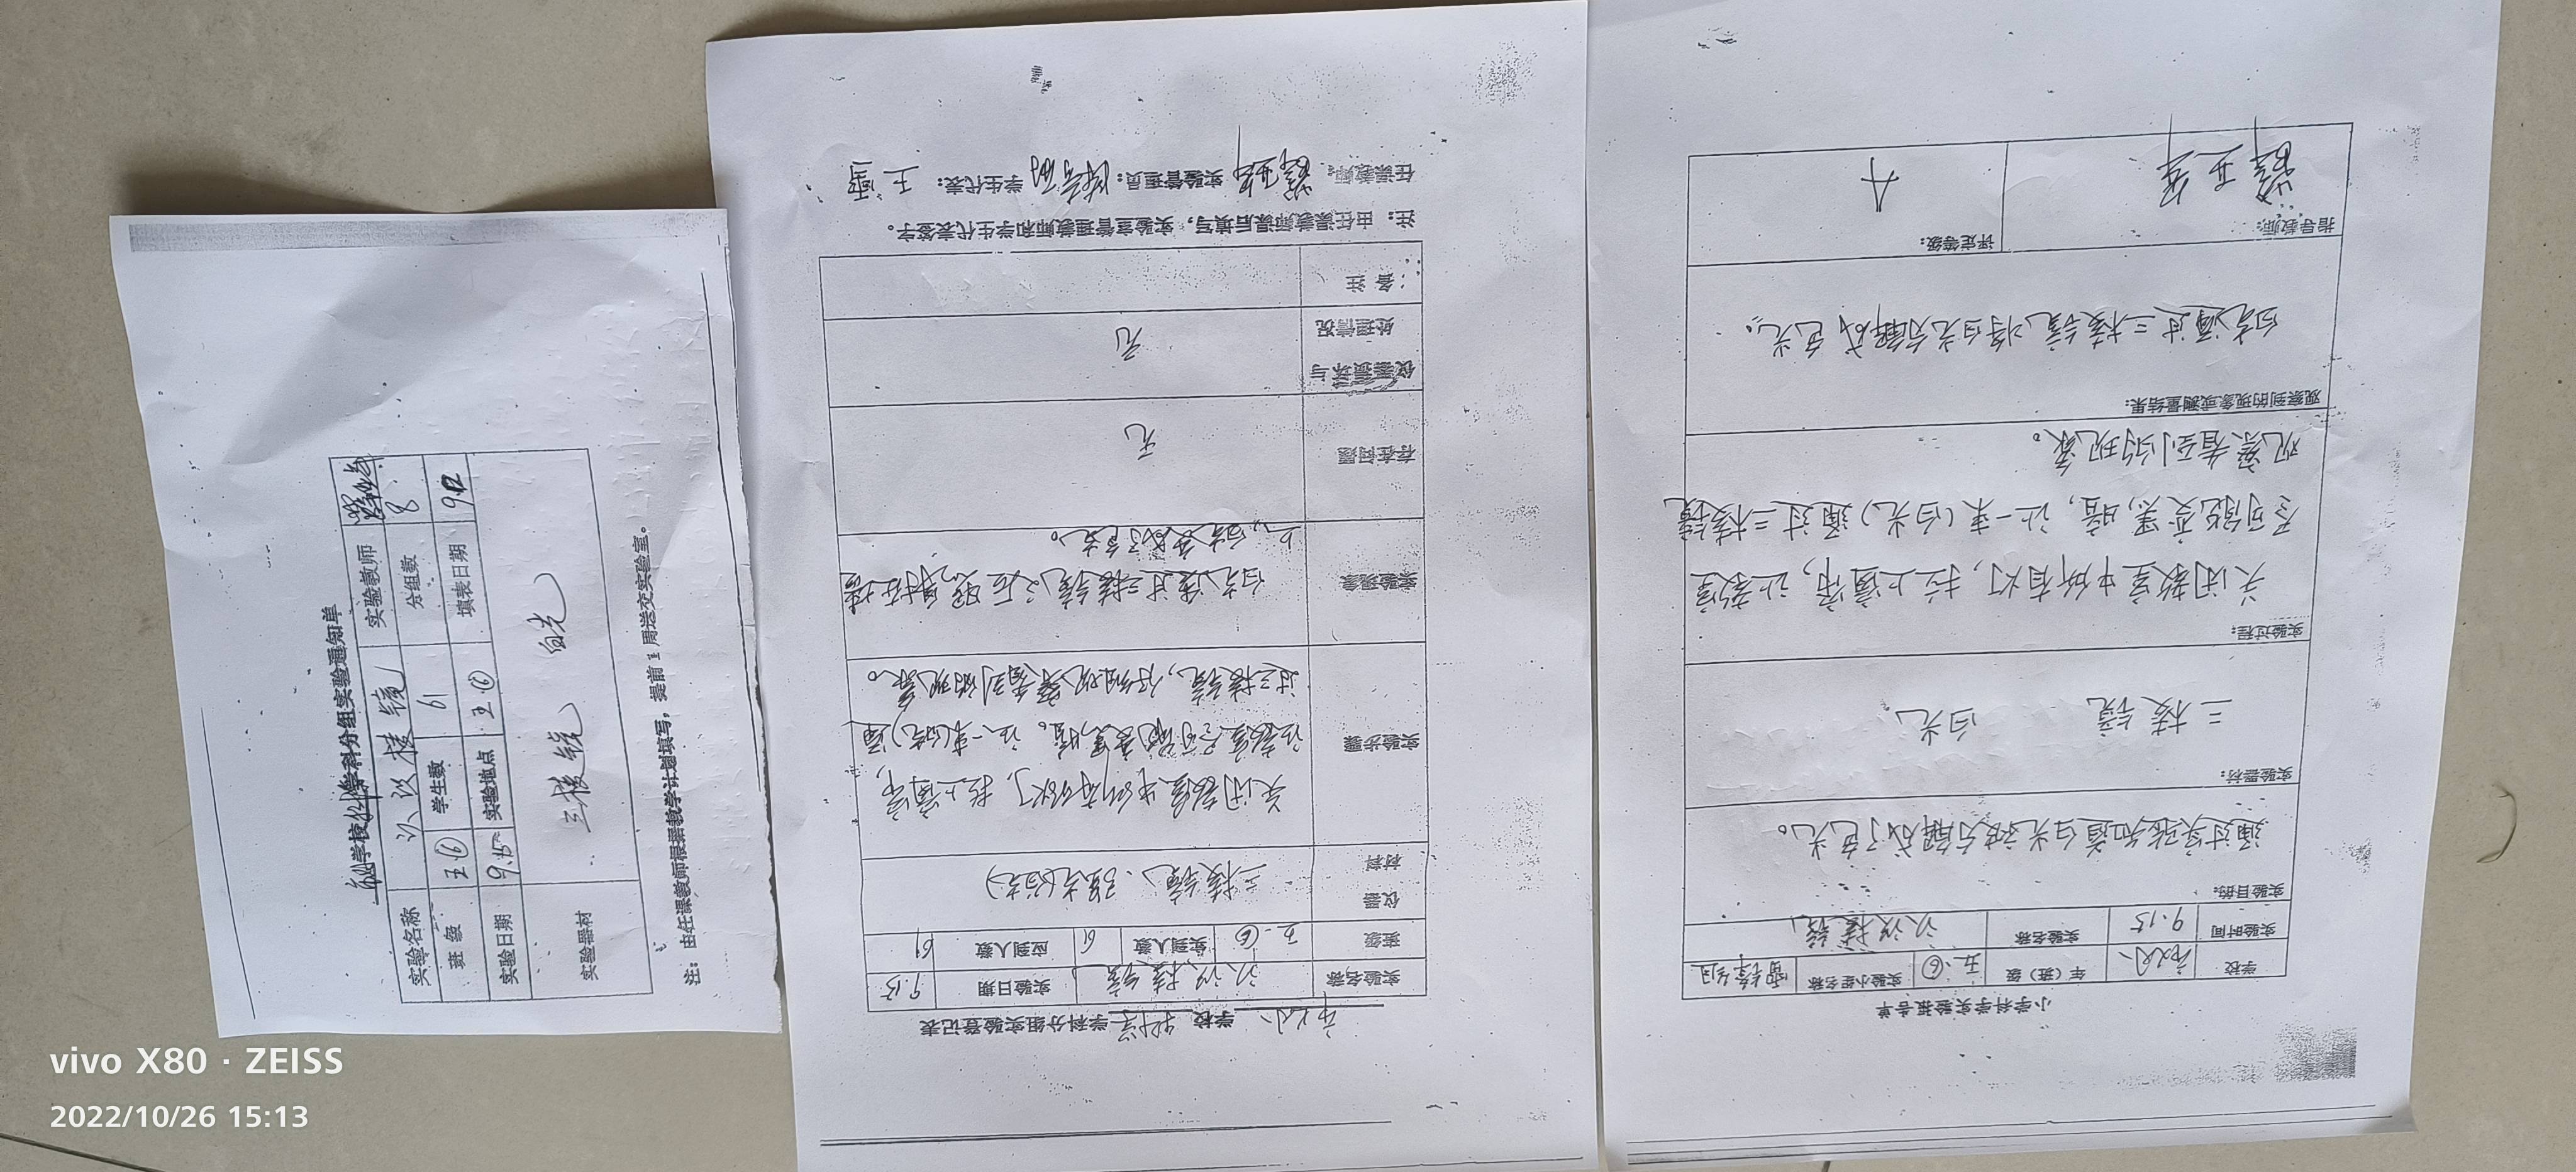 学校科学学科分组实验通知单
实验名称 认识棱镜 实验教师
班级 五.⑥ 学生数 61 分组数 8
实验日期 9.15 实验地点 五.⑥ 填表日期 9.12
实验器材 三棱镜 白光
注：由任课教师根据教学计划填写，提前1周送交实验室。
学校 科学 学科分组实验登记表
实验名称 认识棱镜 实验日期 9.15
班级 五.⑥ 实到人数 61 应到人数 61
仪器材料 三棱镜、强光(白光)
实验步骤 关闭教室中所有的灯，拉上窗帘，
让教室尽可能变黑,暗。让一束(白光)通
过三棱镜，仔细观察看到的现象。
实验现象 白光通过三棱镜之后照射在墙
上，白光变成了色光。
存在问题 无
仪器损坏与处理情况 无
备注
注：由任课教师课后填写，实验室管理教师和学生代表签字。
任课教师： 实验管理员： 学生代表：王雪
小学科学实验报告单
学校 年（班）级 五.⑥ 实验小组名称 雷锋组
实验时间 9.15 实验名称 认识棱镜
实验目的：
通过实验知道白光被分解成了色光。
实验器材：
三棱镜 白光
实验过程：
关闭教室中所有灯，拉上窗帘，让教室
尽可能变黑,暗，让一束(白光)通过三棱镜
观察看到的现象。
观察到的现象或测量结果：
白光通过三棱镜将白光分解成色光。
指导教师： 评定等级：
A
vivo X80 · ZEISS
2022/10/26 15:13